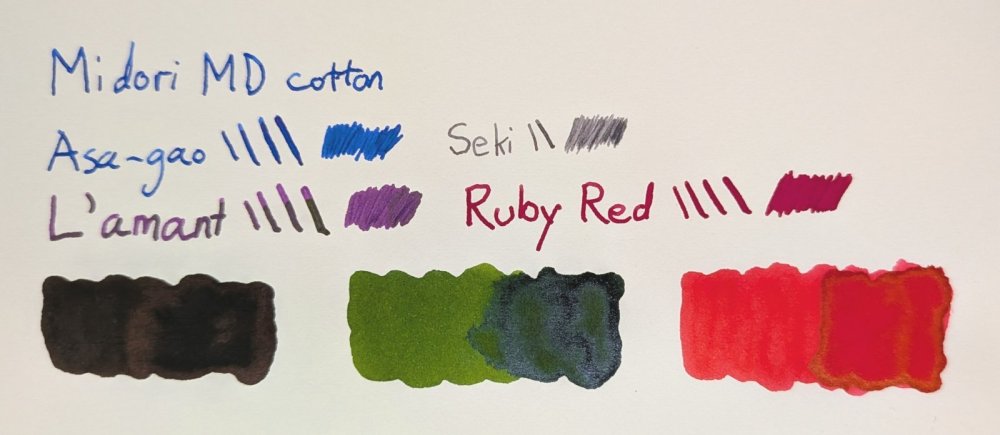 Midori MD cotton
Asa-gao Seki
L'amant Ruby Red